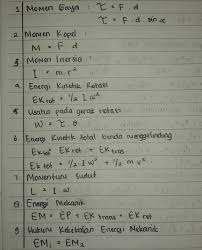 1 Momen Gaya : τ = F . d
τ = F . d sin α
2 Momen Kopel :
M = F d
3 Momen Inersia :
I = m r²
4 Energi Kinetik Rotasi
EK rot = ½ I ω²
5 Usaha pada gerak rotasi
W = τ θ
6 Energi Kinetik total benda menggelinding
EK tot = EK rot + EK trans
EK tot = ½ I ω² + ½ m v²
7 Momentum Sudut
L = I ω
8 Energi Mekanik
EM = EP + EK trans + EK rot
9 Hukum Kekekalan Energi Mekanik
EM₁ = EM₂